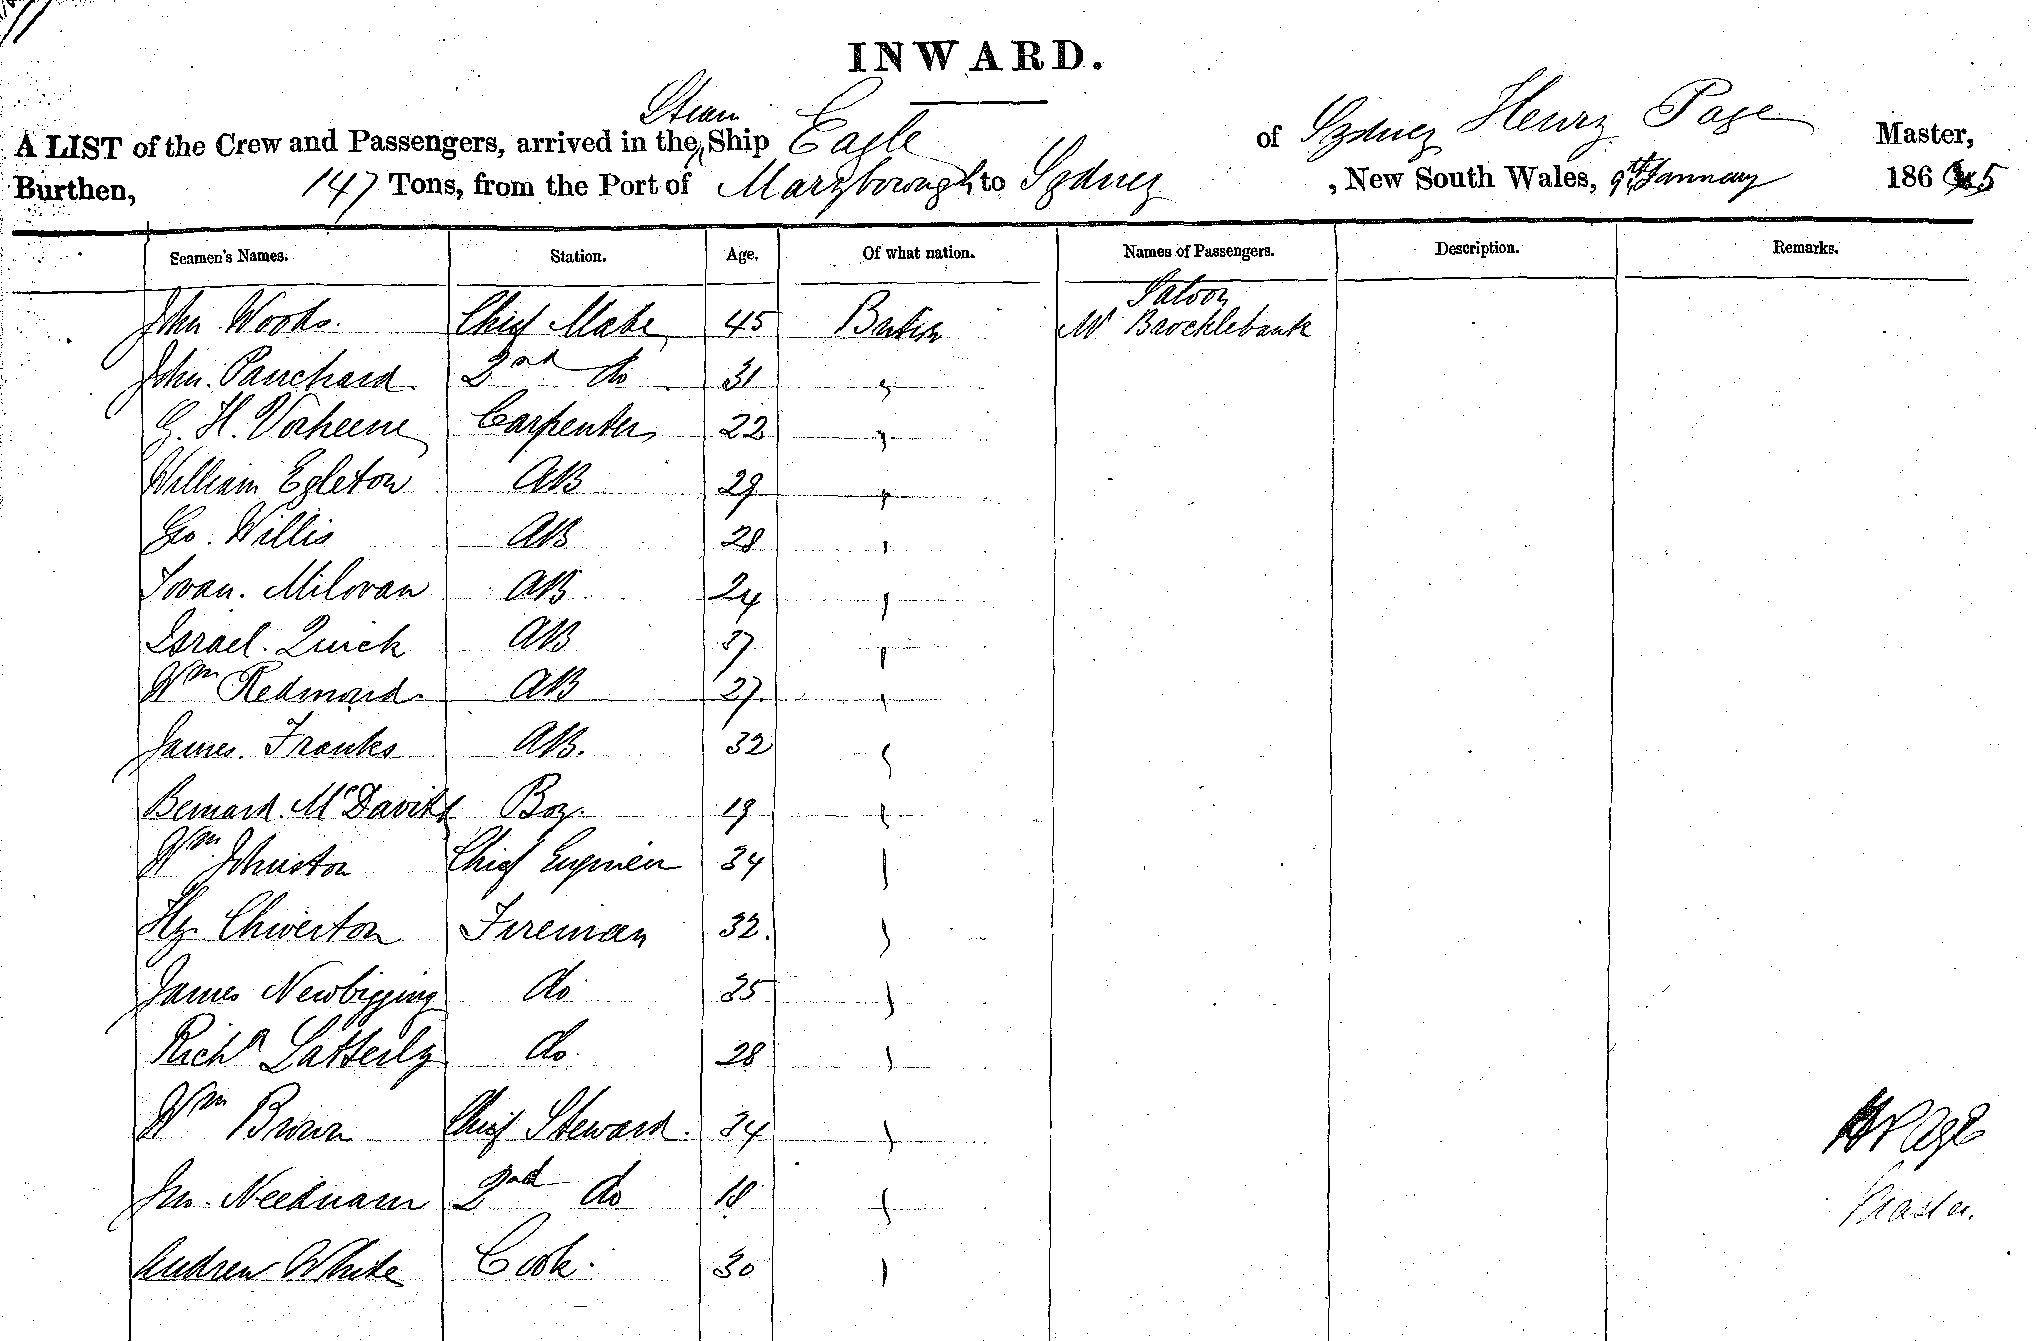 INWARD.
Steam
A LIST of the Crew and Passengers, arrived in the Ship Eagle of Sydney Henry Page Master,
Burthen, 147 Tons, from the Port of Maryborough to Sydney , New South Wales, 9th January 1865
Seamen's Names. Station. Age. Of what nation. Names of Passengers. Description. Remarks.
Saloon
John Woods. Chief Mate 45 British Mr Brocklebank
John Panchard 2nd do 31 "
G. H. Vaheene Carpenter 22 "
William Egleton AB 29 "
Geo. Willis AB 28 "
Iovan. Milovan AB 24 "
Israel. Quick AB 37 "
Wm Redmond AB 27 "
James. Franks AB. 32 "
Bernard. McDavitt Boy. 19 "
Wm Johnston Chief Engineer 34 "
Hy Chiverton Fireman 32. "
James Newbigging do 35 "
Richd Latterly do 28 "
Wm Brown Chief Steward. 34 "
Jno. Needham 2nd do 18 "
Andrew White Cook. 30 "
H Page
Master.